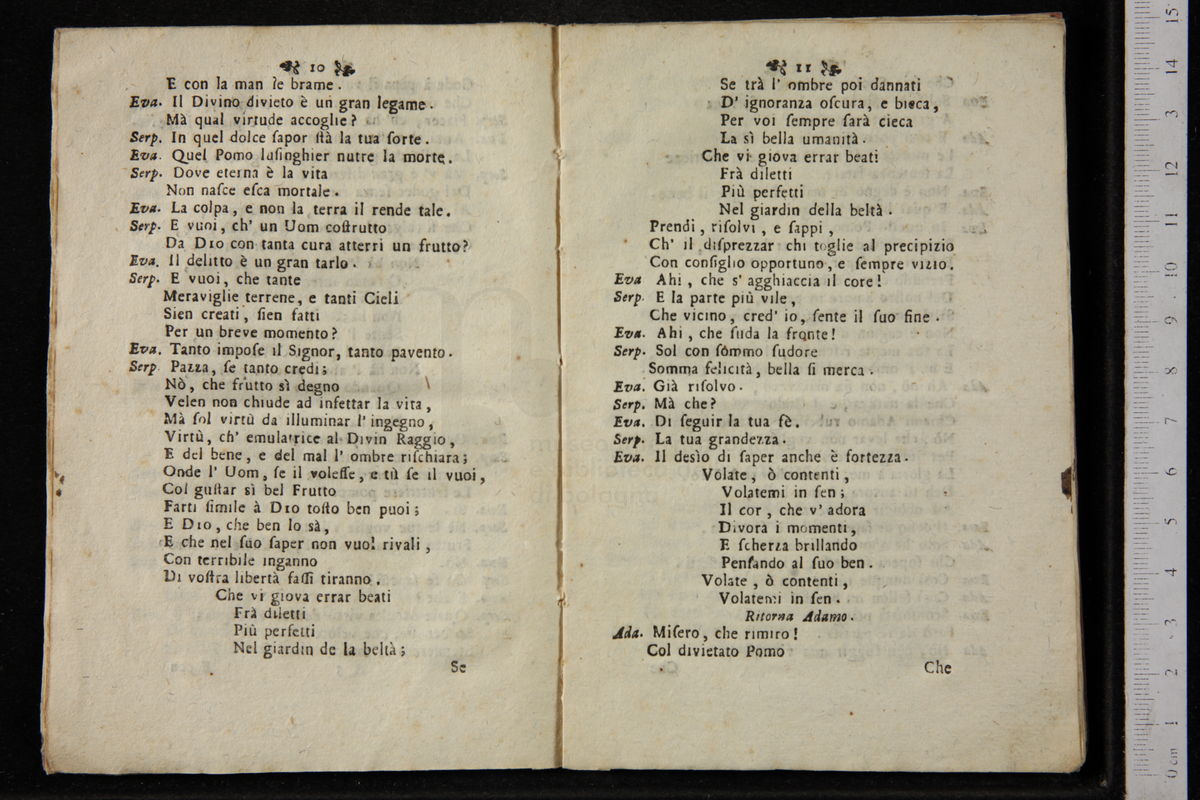 10
E con la man ſe brame.
Eva. Il Divino divieto è un gran legame.
Mà qual virtude accoglie?
Serp. In quel dolce ſapor ſtà la tua ſorte.
Eva. Quel Pomo luſinghier nutre la morte.
Serp. Dove eterna è la vita
Non naſce eſca mortale.
Eva. La colpa, e non la terra il rende tale.
Serp. E vuoi, ch' un Uom coſtrutto
Da DIO con tanta cura atterri un frutto?
Eva. Il delitto è un gran tarlo.
Serp. E vuoi, che tante
Meraviglie terrene, e tanti Cieli
Sien creati, ſien fatti
Per un breve momento?
Eva. Tanto impoſe il Signor, tanto pavento.
Serp. Pazza, ſe tanto credi;
Nò, che frutto sì degno
Velen non chiude ad infettar la vita,
Mà ſol virtù da illuminar l' ingegno,
Virtù, ch' emulatrice al Divin Raggio,
E del bene, e del mal l' ombre riſchiara;
Onde l' Uom, ſe il voleſſe, e tù ſe il vuoi,
Col guſtar sì bel Frutto
Farti ſimile à DIO toſto ben puoi;
E DIO, che ben lo sà,
E che nel ſuo ſaper non vuol rivali,
Con terribile inganno
Di voſtra libertà faſſi tiranno.
Che vi giova errar beati
Frà diletti
Più perfetti
Nel giardin de la beltà;
Se
11
Se trà l' ombre poi dannati
D' ignoranza oſcura, e bieca,
Per voi ſempre ſarà cieca
La sì bella umanità.
Che vi giova errar beati
Frà diletti
Più perfetti
Nel giardin della beltà.
Prendi, riſolvi, e ſappi,
Ch' il diſprezzar chi toglie al precipizio
Con conſiglio opportuno, e ſempre vizio.
Eva Ahi, che s' agghiaccia il core!
Serp. E la parte più vile,
Che vicino, cred' io, ſente il ſuo fine.
Eva. Ahi, che ſuda la fronte!
Serp. Sol con ſommo ſudore
Somma felicità, bella ſi merca.
Eva. Già riſolvo.
Serp. Mà che?
Eva. Di ſeguir la tua fè.
Serp. La tua grandezza.
Eva. Il desìo di ſaper anche è fortezza.
Volate, ò contenti,
Volatemi in ſen;
Il cor, che v' adora
Divora i momenti,
E ſcherza brillando
Penſando al ſuo ben.
Volate, ò contenti,
Volatemi in ſen.
Ritorna Adamo.
Ada. Miſero, che rimiro!
Col divietato Pomo
Che